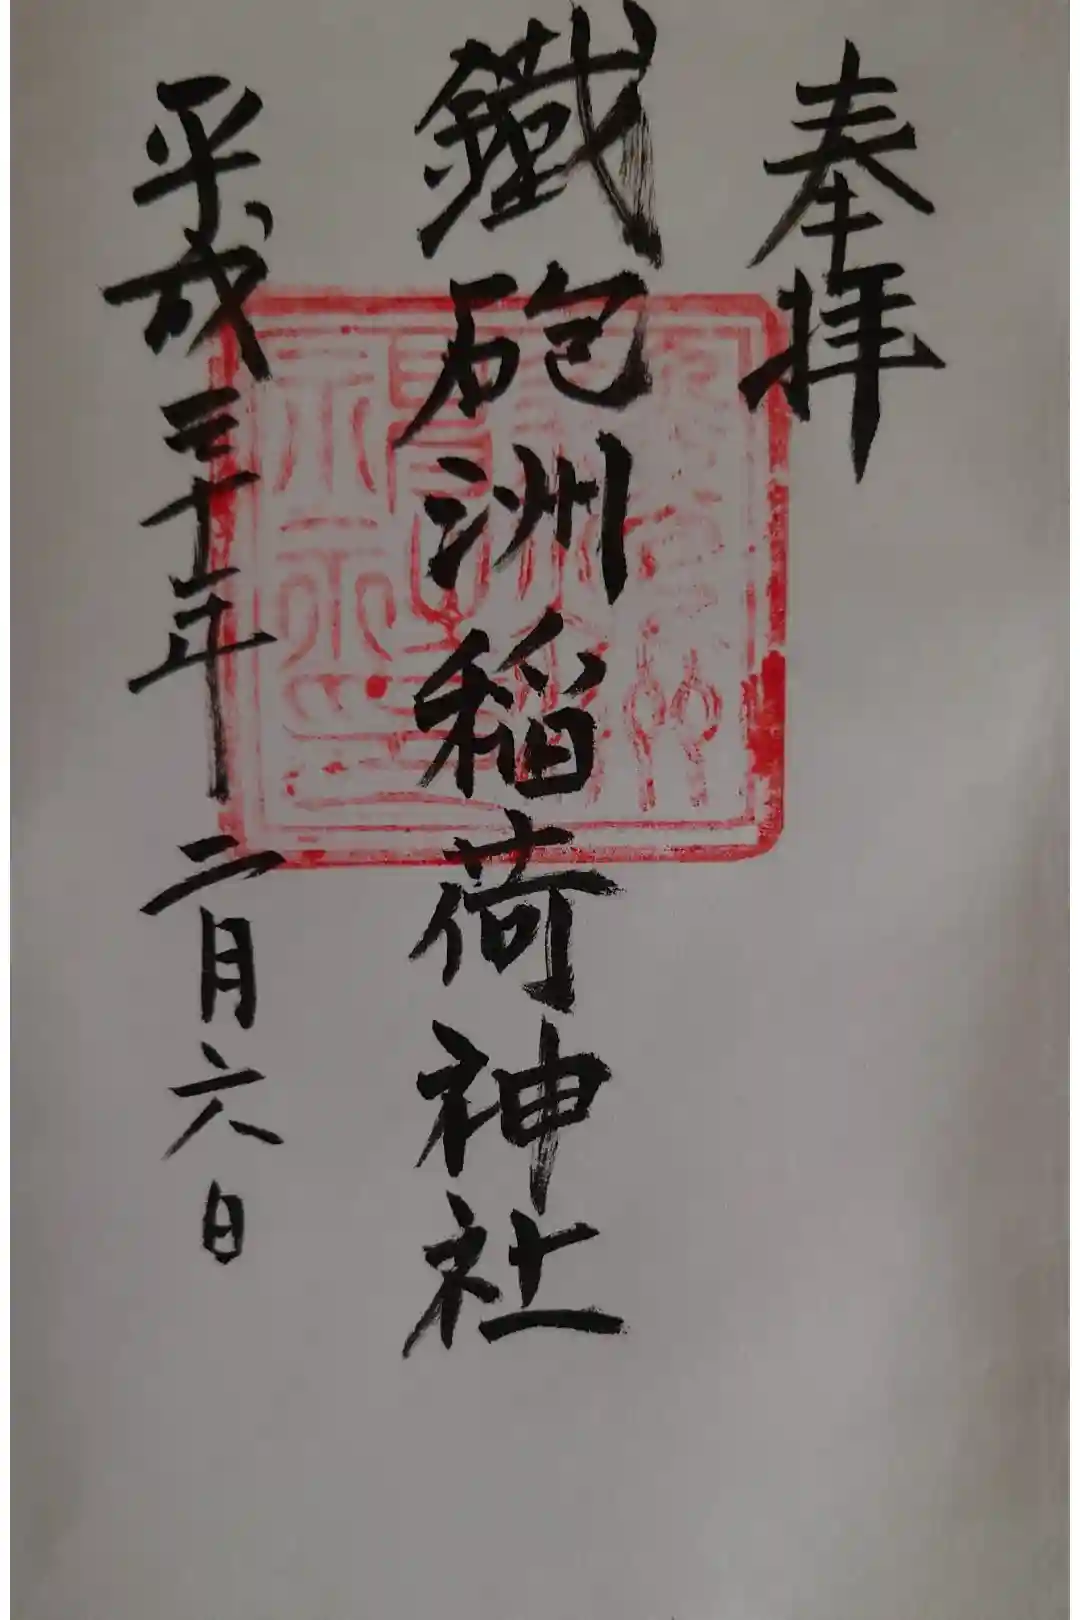 奉拝
鐵砲洲稲荷神社
平成三十年二月六日